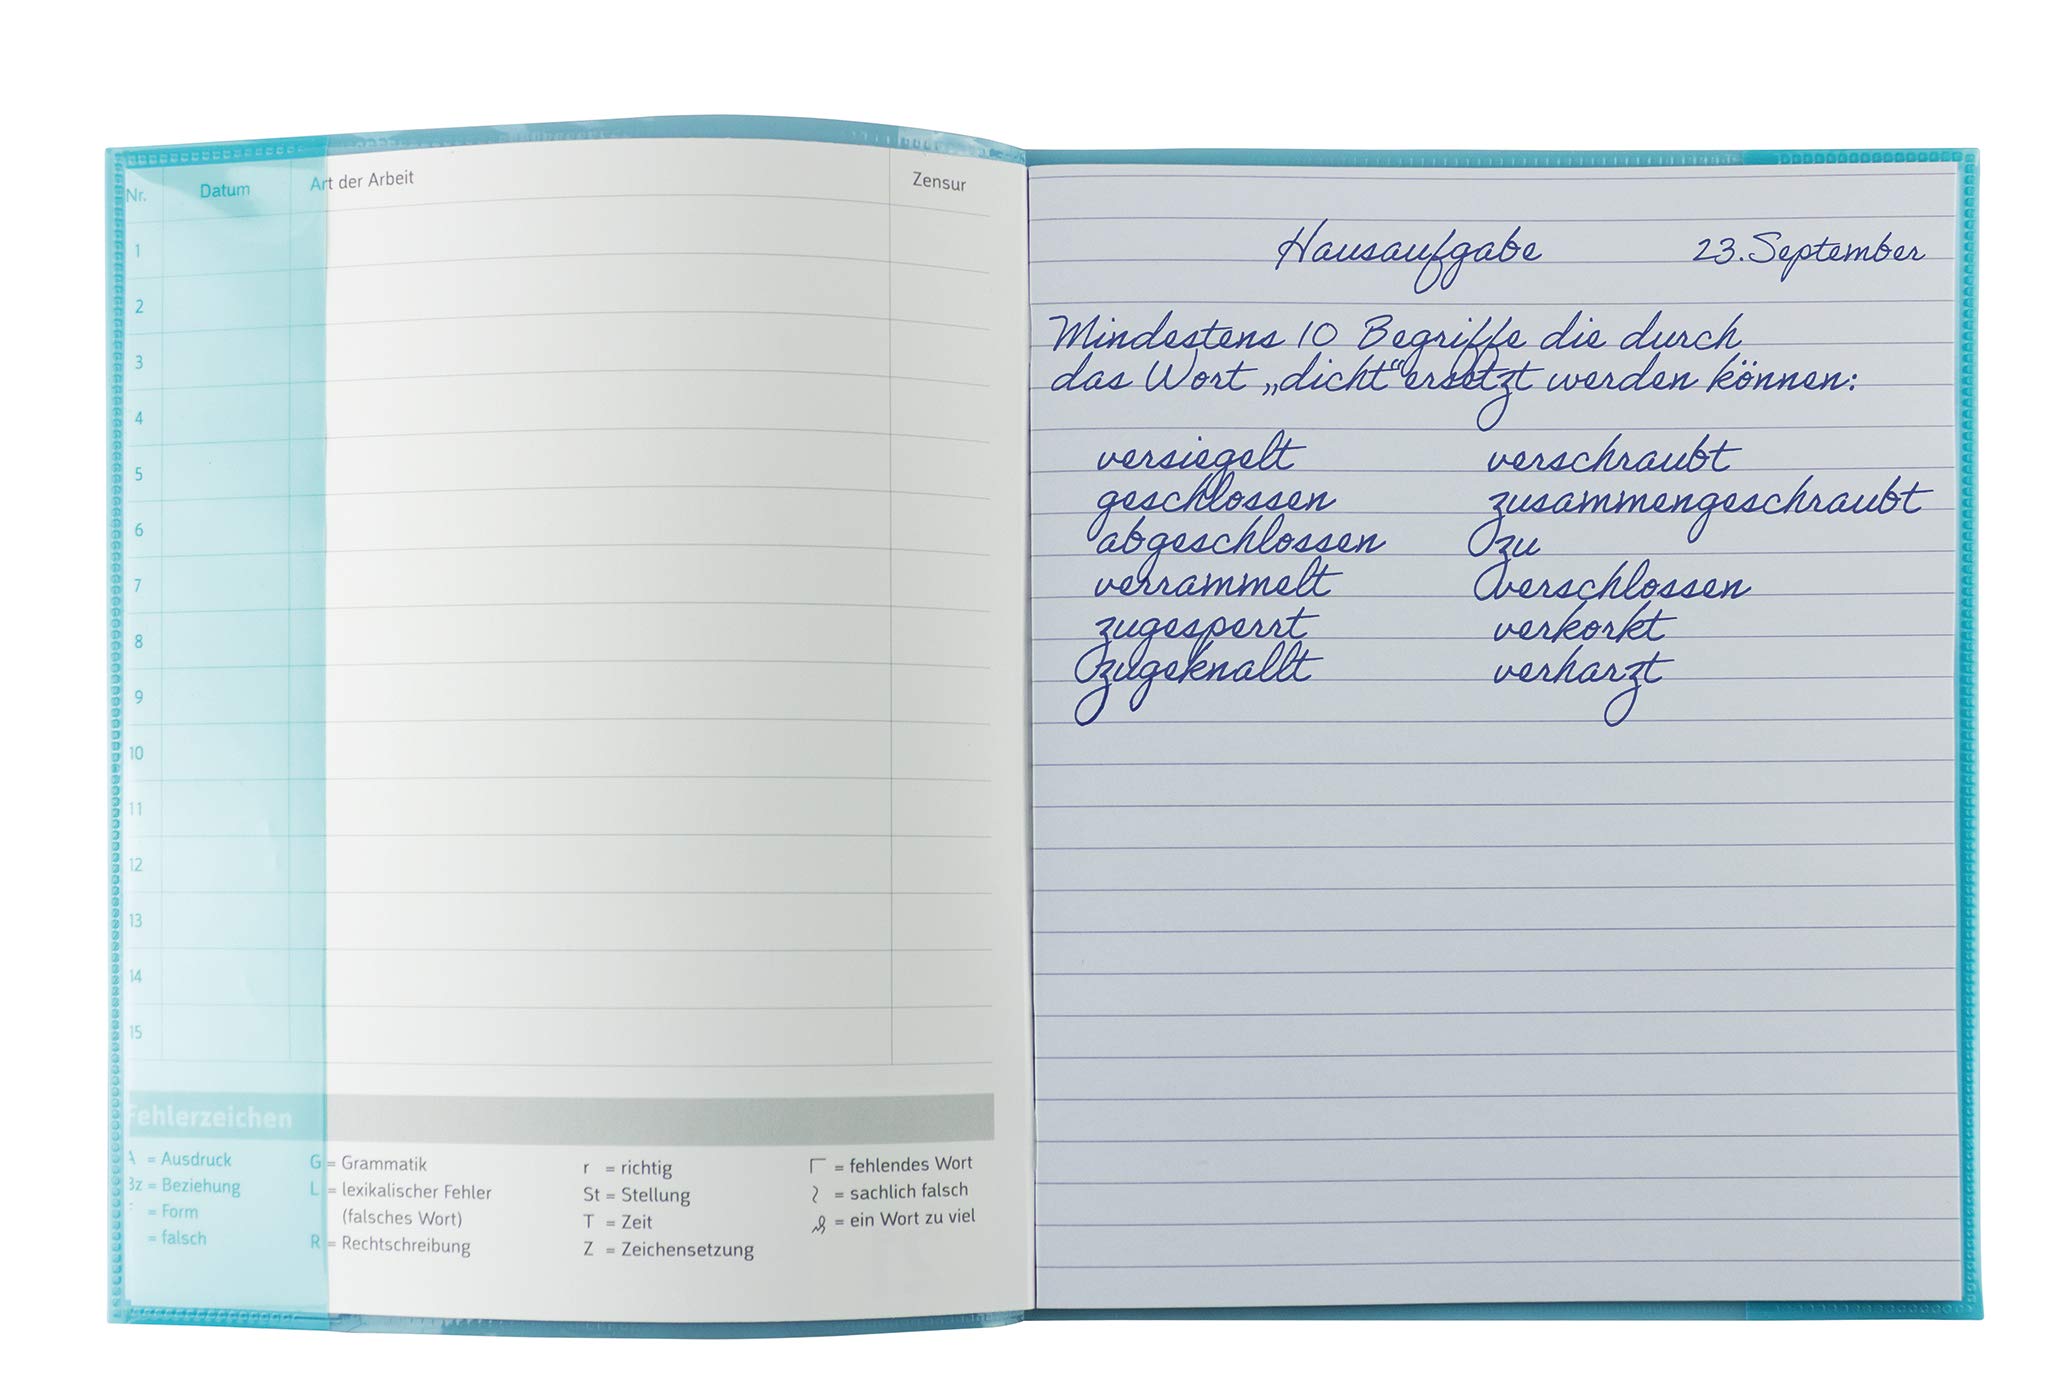 Nr. Datum Art der Arbeit Zensur
1
2
3
4
5
6
7
8
9
10
11
12
13
14
15
Fehlerzeichen
A = Ausdruck
Bz = Beziehung
= Form
= falsch
G = Grammatik
L = lexikalischer Fehler
(falsches Wort)
R = Rechtschreibung
r = richtig
St = Stellung
T = Zeit
Z = Zeichensetzung
= fehlendes Wort
= sachlich falsch
= ein Wort zu viel
Hausaufgabe 23. September
Mindestens 10 Begriffe die durch
das Wort „dicht“ ersetzt werden können:
versiegelt
geschlossen
abgeschlossen
verrammelt
zugesperrt
zugeknallt
verschraubt
zusammengeschraubt
zu
verschlossen
verkorkt
verharzt